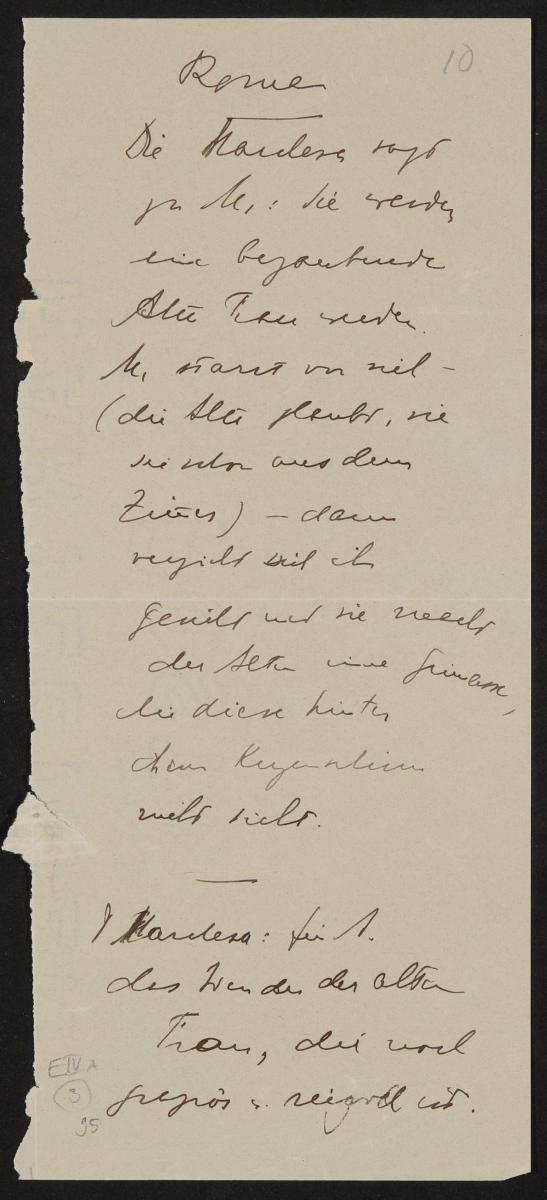 10
Roman
Die Marchesa sagt
zu M,: Sie werden
eine bezaubernde
Alte Frau werden.
M, starrt vor sich –
(die Alte glaubt, sie
sei schon aus dem
Zimer) – dann
verzieht sich ihr
Gesicht und sie macht
der Alten eine Grimasse,
die diese hinter
ihrem Regenschirm
nicht sieht.
Marchesa: für A.
das Wunder der alten
Frau, die noch
graziös u. reizvoll ist.
E IV A
3
95